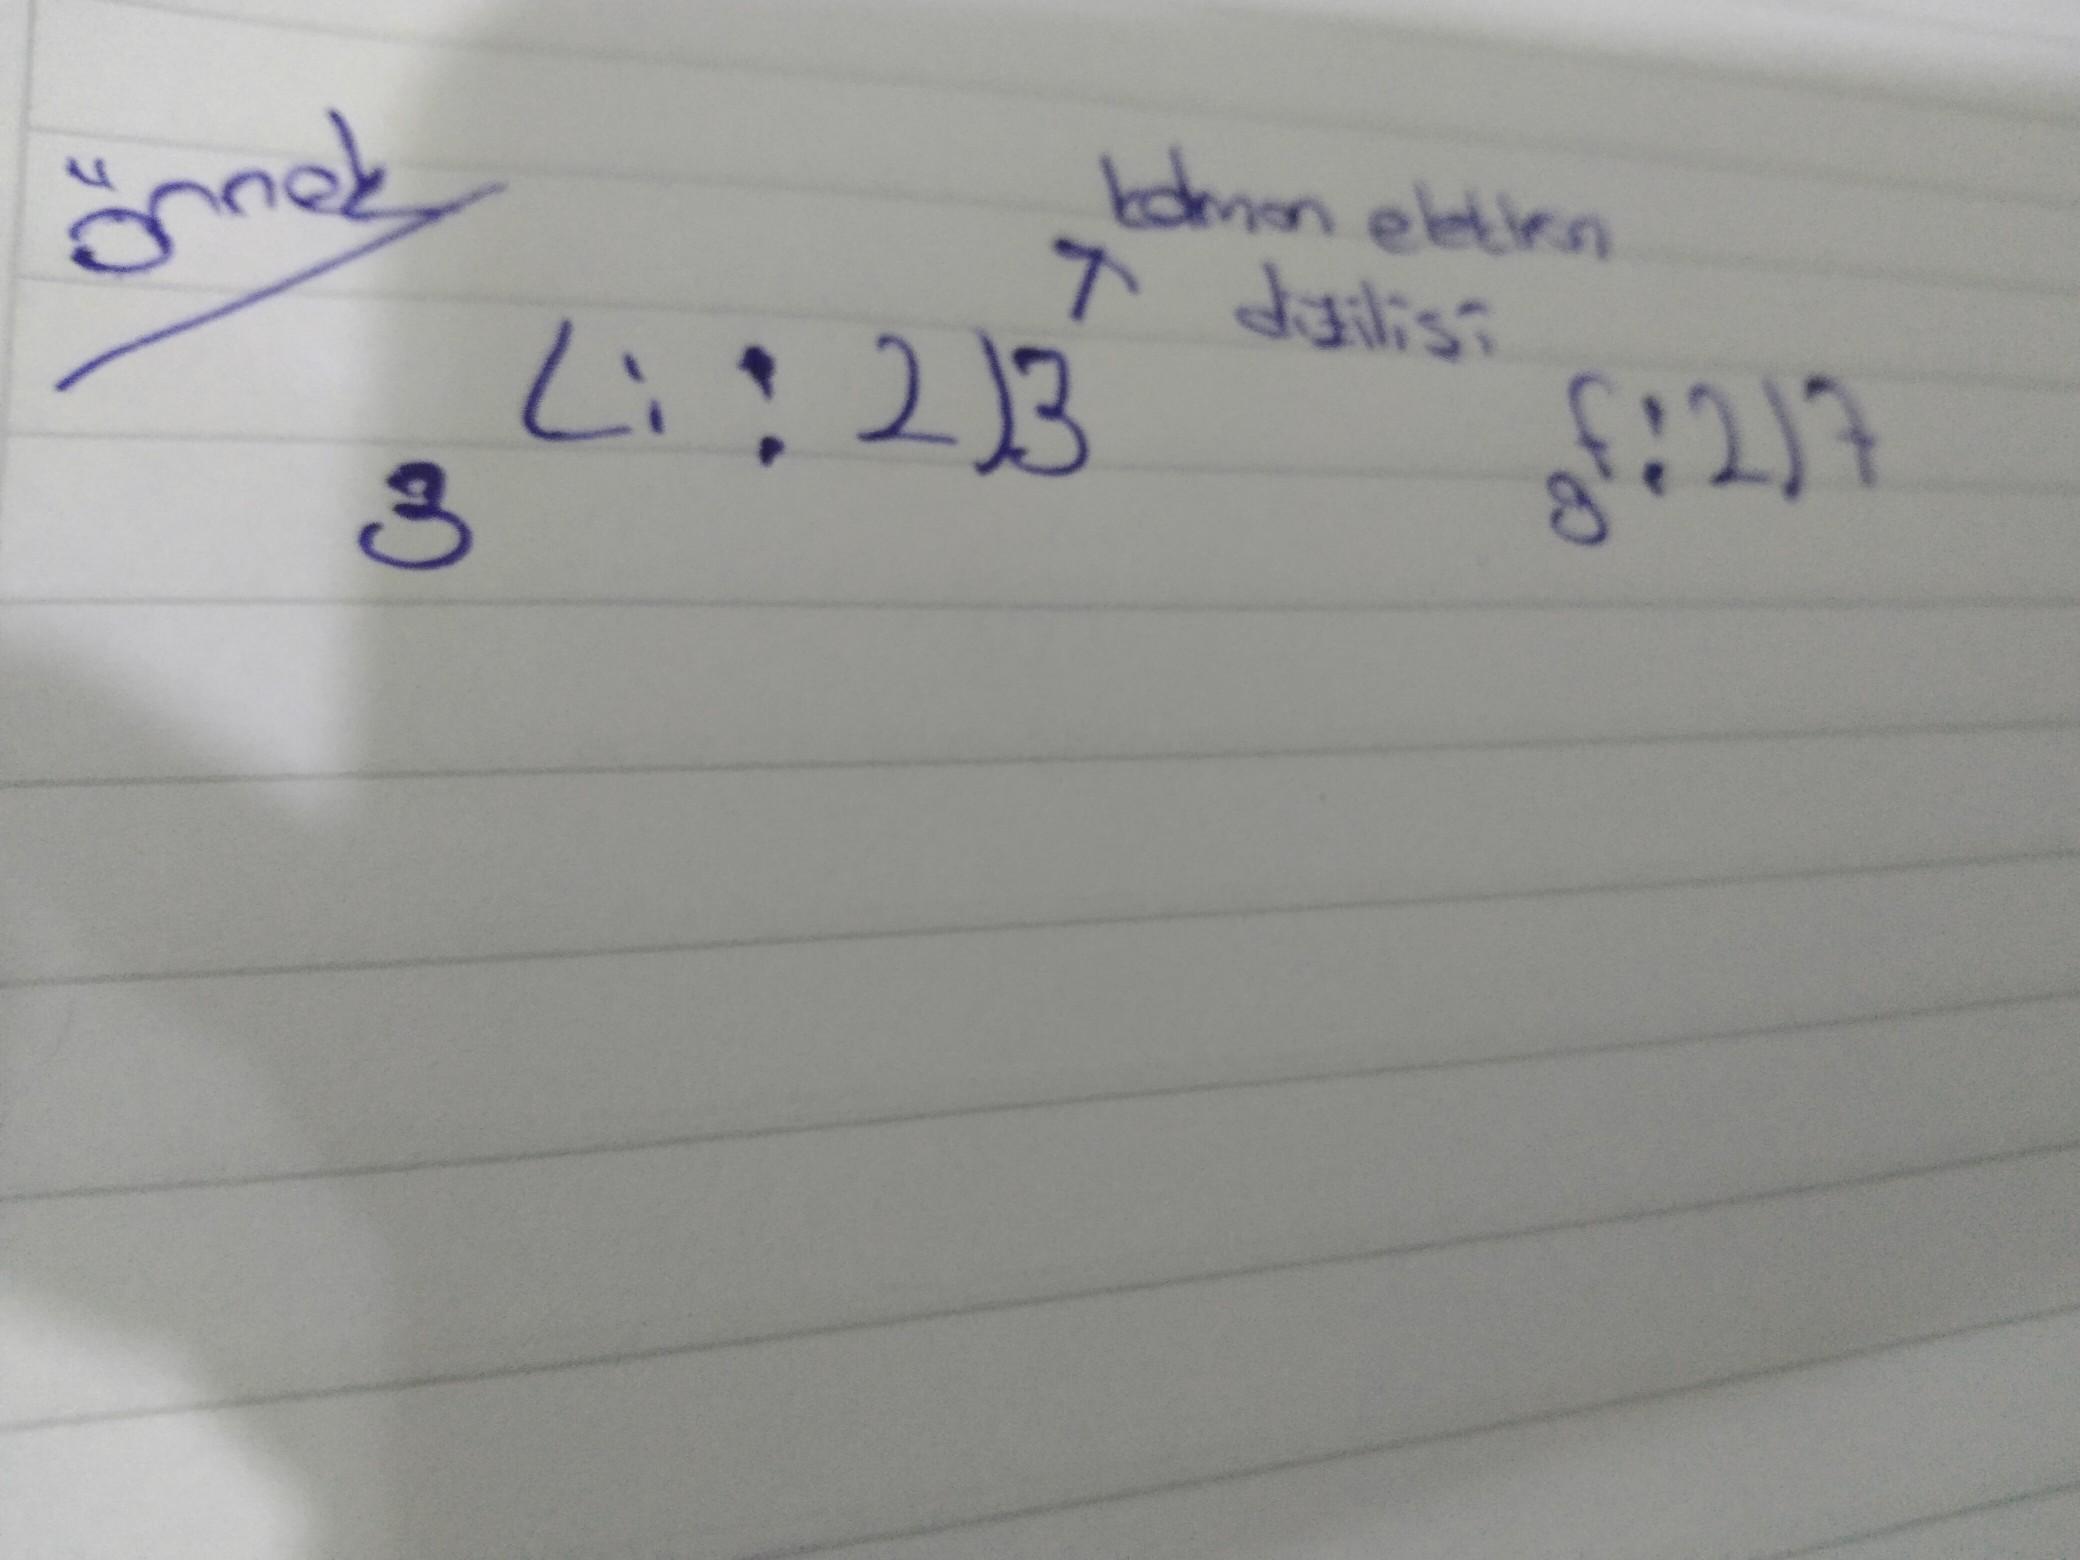 örnek
katman elektron
dizilisi
3 Li : 2)3
9 f : 2)7